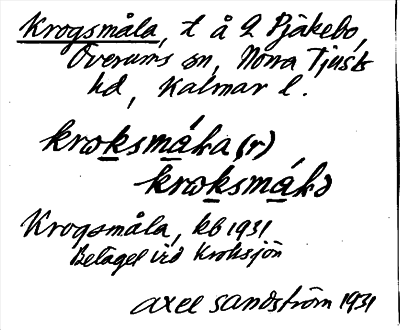 Krogsmåla, t å 2 Bjäkebo,
Överums sn, Norra Tjusts
hd, Kalmar l.
krωksmála (r)
krωksmálə
Krogsmåla, kb 1931
Beläget vid Kroksjön
Axel Sandström 1931